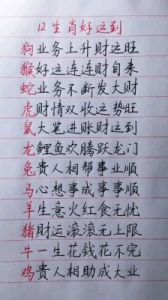 12生肖好运到
狗业务上升财运旺
猴好运连连财自来
蛇业务不断发大财
虎财情双收运势旺
鼠大笔进账财运到
龙鲤鱼欢腾跃龙门
兔贵人相帮事业顺
马心想事成事事顺
羊生意火红食无忧
猪财运滚滚无上限
牛一生花钱花不完
鸡贵人相助成大业